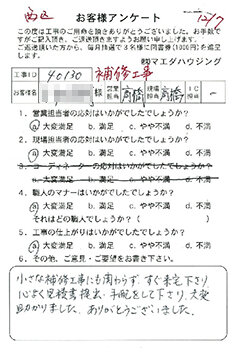 西区
お客様アンケート 12/7
この度は工事のご用命を賜りありがとうございました。お手数で
すがご記入頂き、ご返送頂きますようお願い申し上げます。
ご返送頂いた方から、毎月抽選で3名様に図書券(1000円)を進呈
します。
㈱マエダハウジング
工事ID 40130 補修工事
お客様名 様 営業担当 高橋 現場担当 高橋 IC担当 ー
1. 営業担当者の応対はいかがでしたでしょうか?
a 大変満足 b. 満足 c. やや不満 d. 不満
2. 現場担当者の応対はいかがでしたでしょうか?
a 大変満足 b. 満足 c. やや不満 d. 不満
3. コーディネーターの応対はいかがでしたでしょうか?
a. 大変満足 b. 満足 c. やや不満 d. 不満
4. 職人のマナーはいかがでしたでしょうか?
a 大変満足 b. 満足 c. やや不満 d. 不満
それはどの職人でしょうか?( )
5. 工事の仕上がりはいかがでしたでしょうか?
a 大変満足 b. 満足 c. やや不満 d. 不満
6. その他、ご意見・ご要望をお書き下さい。
小さな補修工事にも関わらず、すぐ来宅下さり
心よく見積書提出・手配をして下さり、大変
助かりました。ありがとうございました。